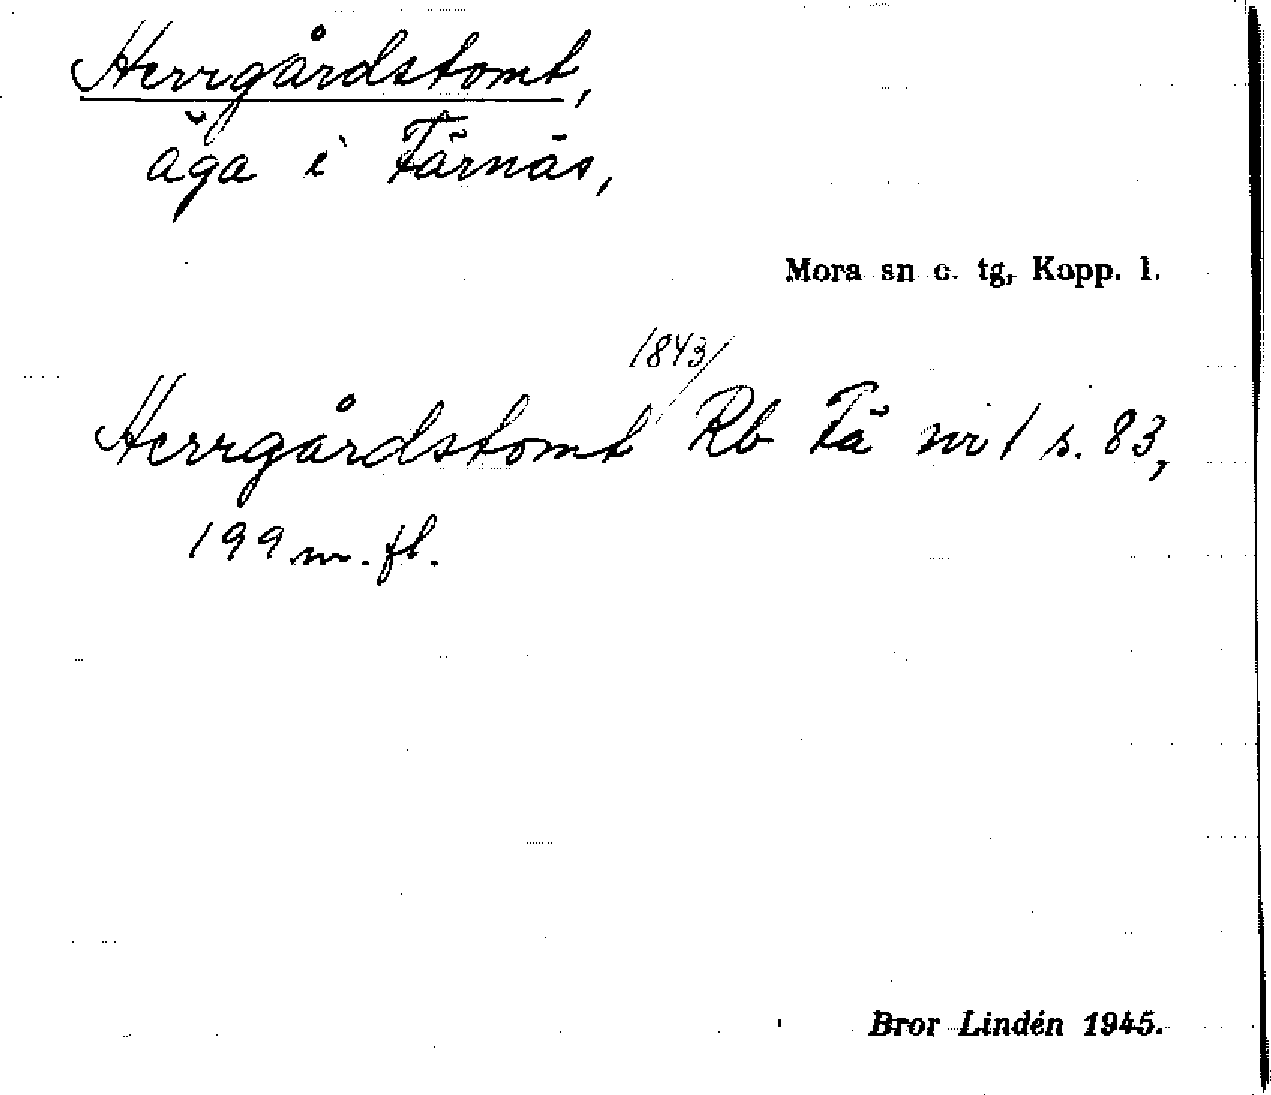 Herrgårdstomt,
äga i Färnäs,
Mora sn o. tg, Kopp. l.
1843/
Herrgårdstomt Rb Fä nr 1 s. 83,
199 m. fl.
Bror Lindén 1945.